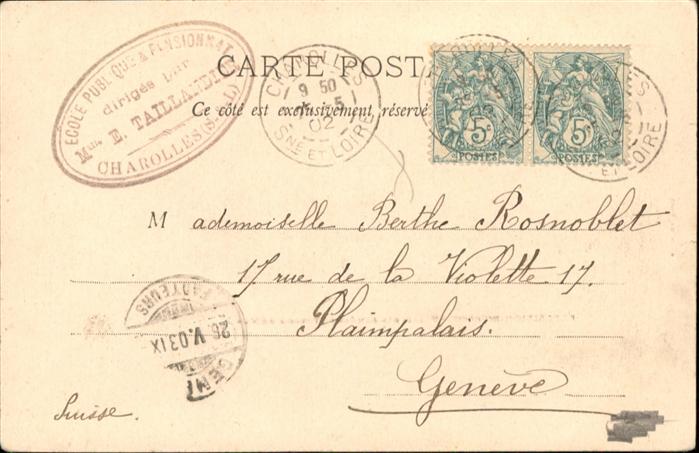 ECOLE PUBLIQUE & PENSIONNAT
dirigés par
Mme E. TAILLANDIER
CHAROLLES (S.&L.)
CARTE POSTA
Ce côté est exclusivement réservé
CHAROLLES
9 50
5
02
SNE ET LOIRE
5c 5c
POSTES POSTES
ET LOIRE
Mademoiselle Berthe Rosnoblet
17 rue de la Violette 17.
Plaimpalais.
Genève
Suisse.
FACTEURS
26 V.03 IX